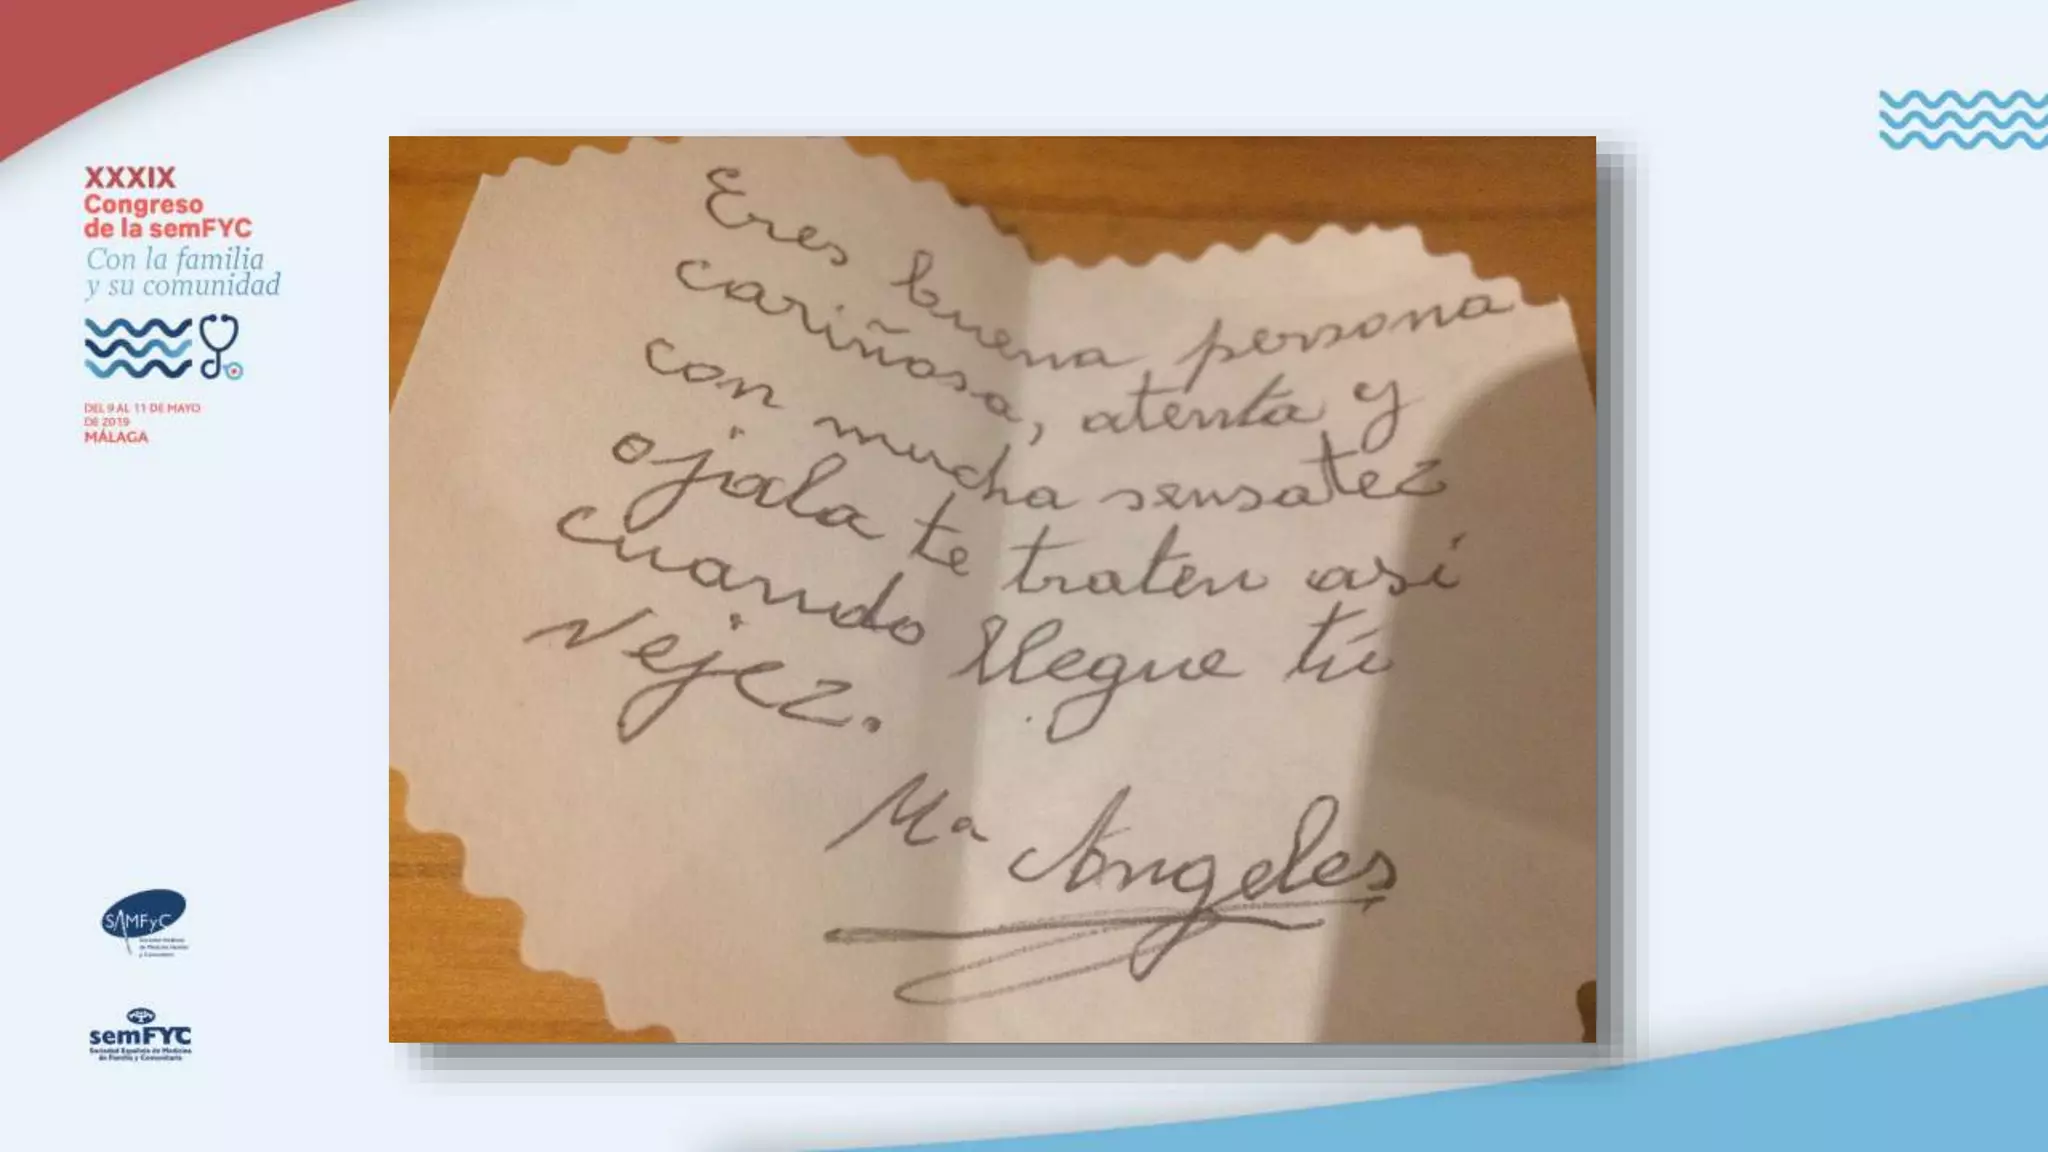 XXXIX
Congreso
de la semFYC
Con la familia
y su comunidad
DEL 9 AL 11 DE MAYO
DE 2019
MÁLAGA
Eres buena persona
cariñosa, atenta y
con mucha sensatez
ojala te traten así
cuando llegue tú
vejez.
Mª Angeles
SAMFyC
semFYC
Sociedad Española de Medicina
de Familia y Comunitaria